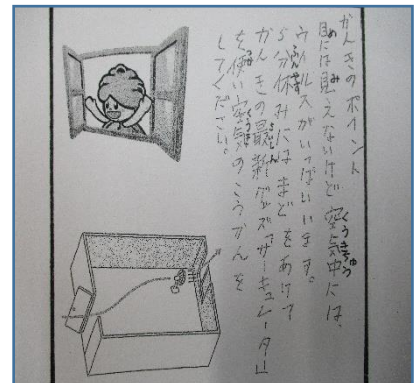 かんきのポイント
目には見えないけど空気中には、
ウイルスがいっぱいいます。
5分休みにはまどをあけて
かんきの最新グッズ「サーキュレーター」
を使い空気のこうかんを
してください。